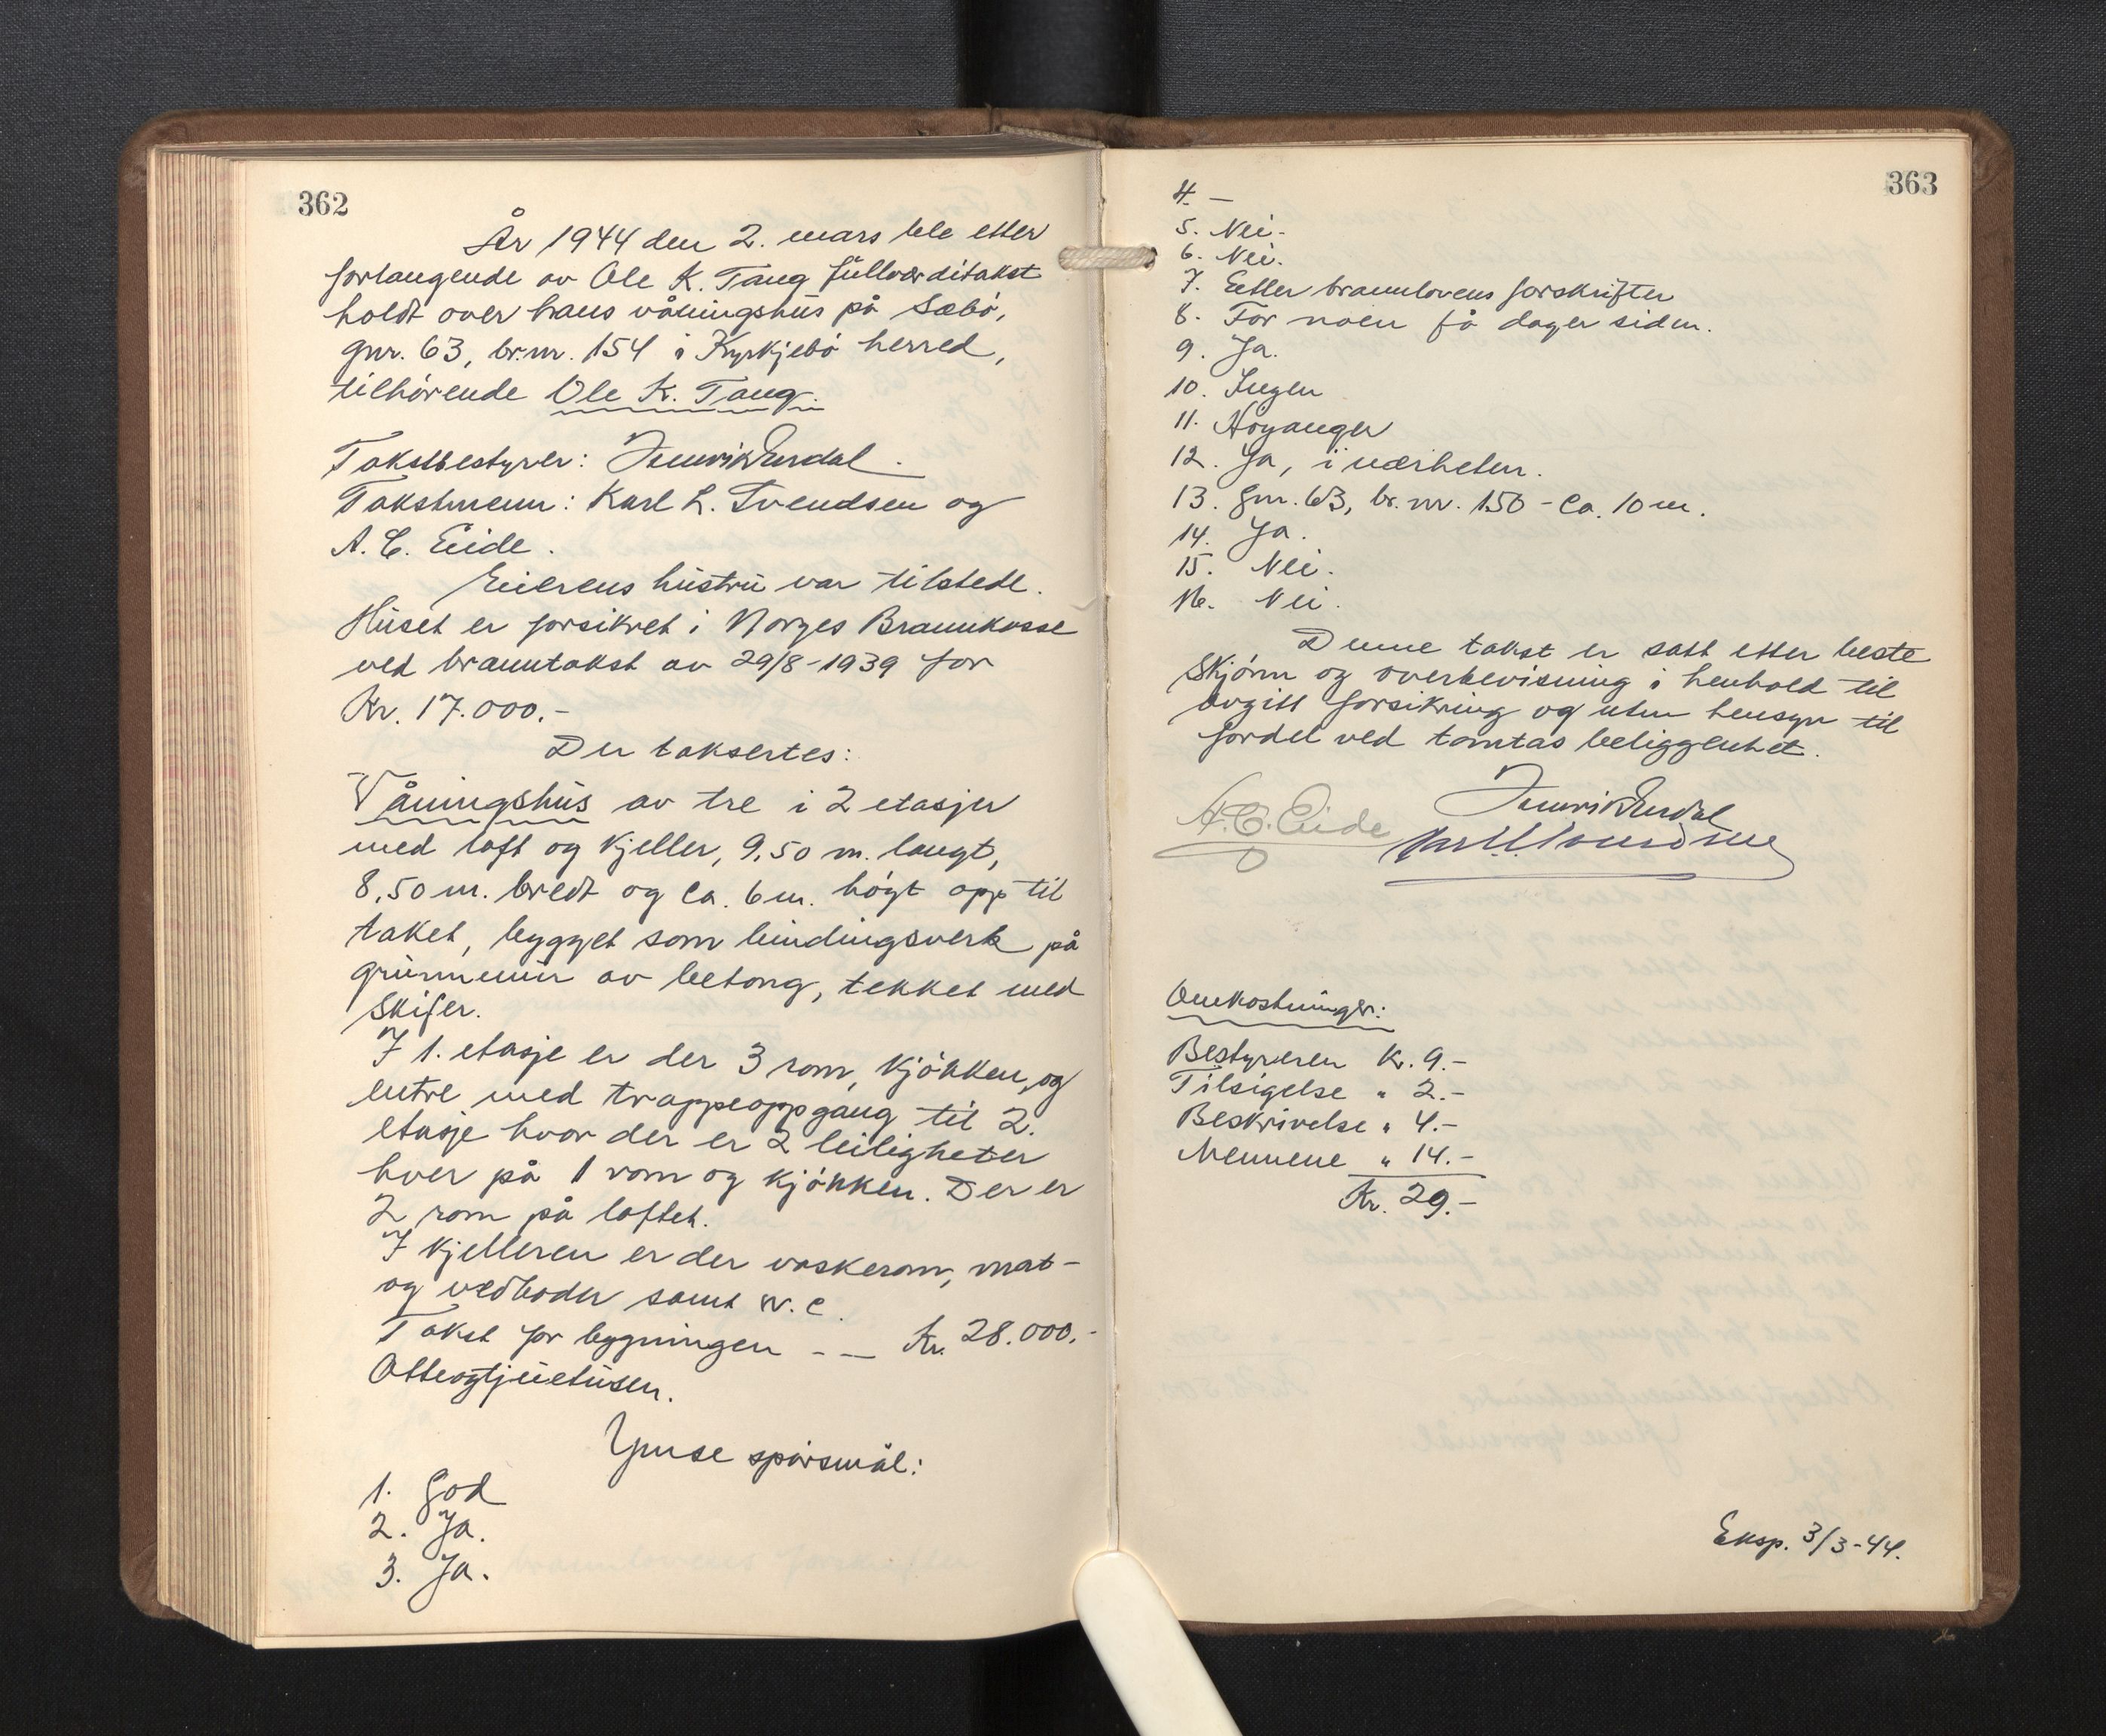 362
År 1944 den 2. mars ble etter
forlangende av Ole K. Tang fullverditakst
holdt over hans våningshus på Sæbö,
gnr. 63, br.nr. 154 i Kyrkjebö herred,
tilhörende Ole K. Tang.
Takstbestyrer:
Takstmenn: Karl L. Svendsen og
A. C. Eide.
Eierens hustru var tilstede.
Huset er forsikret i Norges Brannkasse
ved branntakst av 29/8-1939 for
Kr. 17.000.-
Der taksertes:
Våningshus av tre i 2 etasjer
med loft og kjeller, 9,50 m. langt,
8,50 m. bredt og ca. 6 m. högt opp til
taket, bygget som bindingsverk på
grunnmur av betong, tekket med
skifer.
I 1. etasje er der 3 rom, kjökken, og
entre med trappeoppgang til 2.
etasje hvor der er 2 leiligheter
hver på 1 rom og kjökken. Der er
2 rom på loftet.
I kjelleren er der vaskerom, mat-
og vedboder samt w.c.
Takst for bygningen - — Kr. 28.000.-
Otteogtjuetusen.
Ymse spörsmål:
1. God
2. Ja.
3. Ja.
363
4. —
5. Nei.
6. Nei.
7. Etter brannlovens forskrifter
8. For noen få dager siden.
9. Ja.
10. Ingen
11. Höyanger
12. Ja, i nærheten.
13. gnr. 63, br.nr. 150 - ca. 10 m.
14. Ja.
15. Nei.
16. Nei.
Denne takst er satt etter beste
skjönn og overbevisning i henhold til
avgitt forsikring og uten hensyn til
fordel ved tomtas beliggenhet.
A. C. Eide
Omkostninger:
Bestyreren Kr. 9.-
Tilsigelse " 2.-
Beskrivelse " 4.-
Mennene " 14.-
Kr. 29.-
Eksp. 3/3-44.